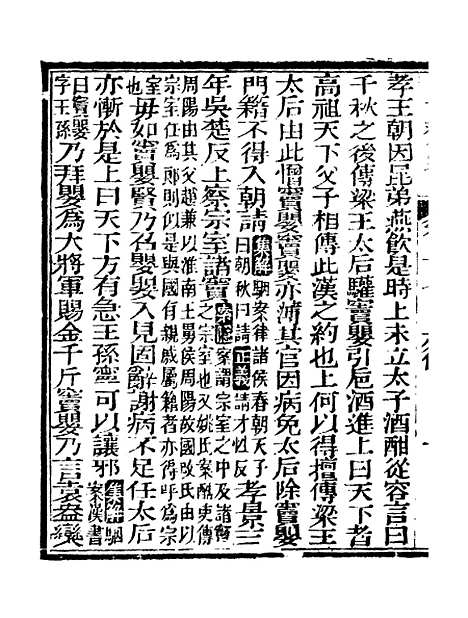 孝王朝因昆弟燕飲是時上未立太子酒酣從容言曰
千秋之後傳梁王太后驩竇嬰引卮酒進上曰天下者
高祖天下父子相傳此漢之約也上何以得擅傳梁王
太后由此憎竇嬰竇嬰亦薄其官因病免太后除竇嬰
門籍不得入朝請集解駰案律諸侯春朝天子曰朝秋曰請正義請才性反孝景三
年吳楚反上察宗室諸竇索隱案謂宗室之中及諸竇之宗室也又姚氏案酷吏傳
周陽由其父趙兼以淮南王舅侯周陽故因改氏由以宗室任爲郎則似是與國有親戚屬籍者亦得呼爲宗
室也毋如竇嬰賢乃召嬰嬰入見固辭謝病不足任太后
亦慚於是上曰天下方有急王孫寧可以讓邪集解駰案漢書
曰竇嬰字王孫乃拜嬰爲大將軍賜金千斤竇嬰乃言袁盎欒